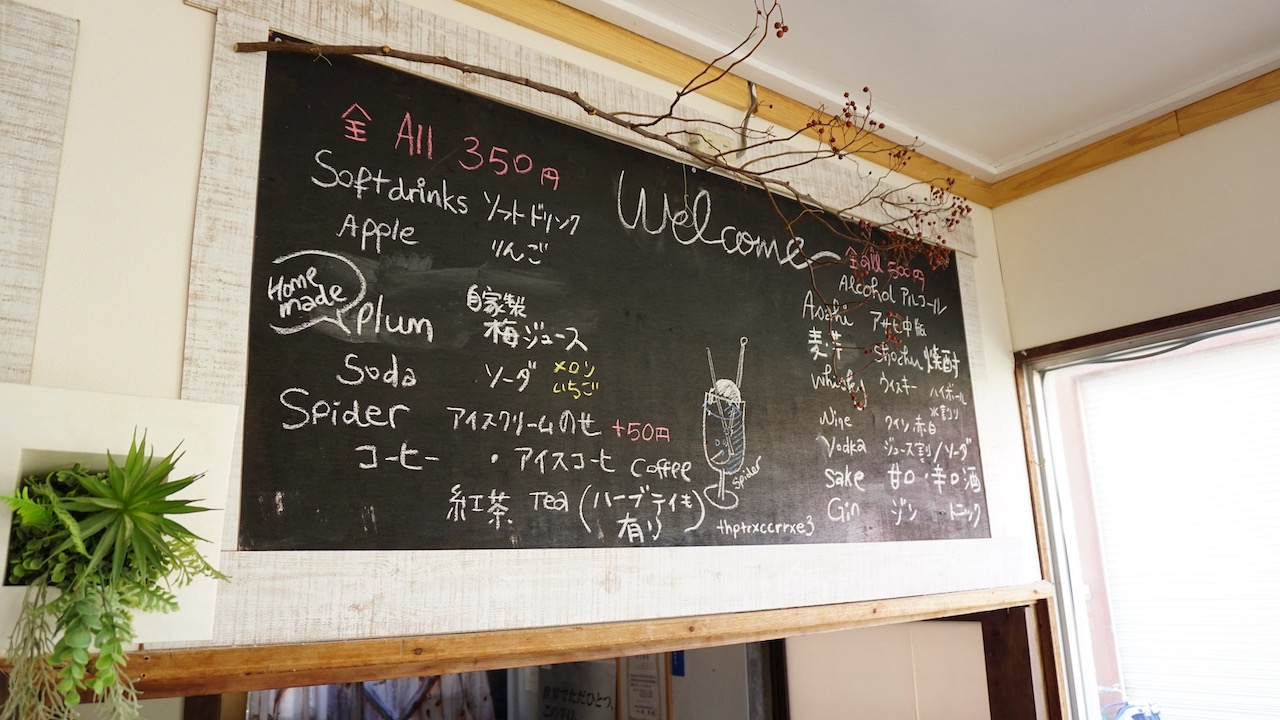 全 All 350円
Softdrinks ソフトドリンク
Apple りんご
Home made plum 自家製
梅ジュース
Soda ソーダ メロン
いちご
Spider アイスクリームのせ +50円
コーヒー ・アイスコーヒ coffee
紅茶 Tea (ハーブティも
有り)
Welcome
Spider
thptrxccrrxe3
全 all 500円
Alcohol アルコール
Asahi アサヒ中瓶
麦・芋 Shochu 焼酎
whisky ウイスキー ハイボール
水割り
Wine ワイン 赤白
Vodka ジュース割/ソーダ
Sake 甘口・辛口酒
Gin ジン トニック
世界でただひとつ、